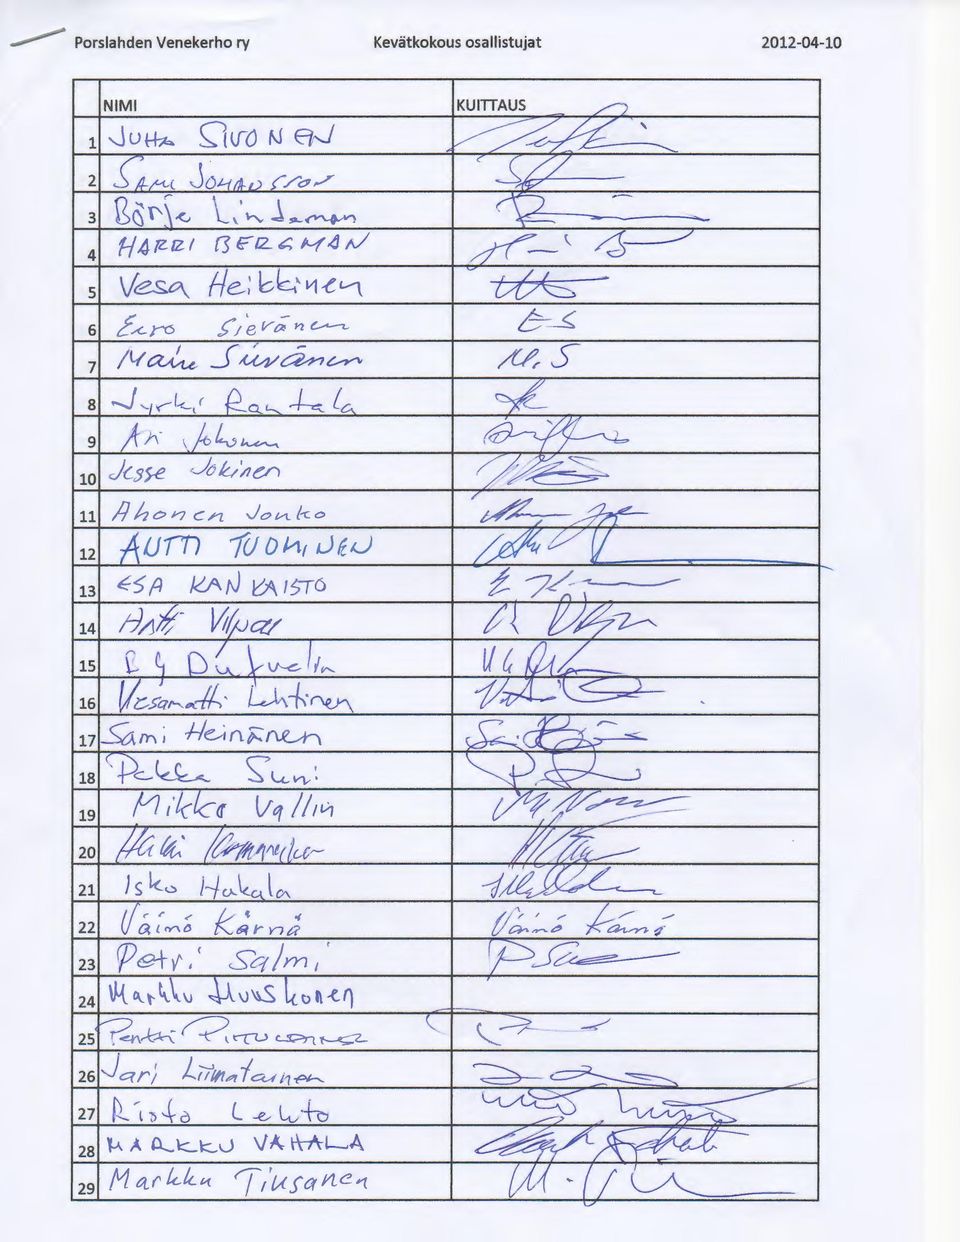 Porslahden Venekerho ry Kevätkokous osallistujat 2012-04-10
NIMI KUITTAUS
1 JUHA SIVONEN
2 SAMI JOHANSSON
3 Börje Lindeman
4 HARRI BERGMAN
5 Vesa Heikkinen
6 Eero Sievänen E S
7 Maire Sievänen M. S
8 Jyrki Rantala
9 Ari Jokonen
10 Jesse Jokinen
11 Ahonen Jouko
12 ANTTI TUOMINEN
13 ESA KANKAISTO
14 Antti Vilpas
15 Dufvelin
16 Vesamatti Lehtinen
17 Sami Heinänen
18 Pekka Suni
19 Mikko Vallin
20
21 Isko Hakala
22 Väinö Kärnä Väinö Kärnä
23 Petri Salmi
24 Markku Huuskonen
25 Pentti
26 Jari Liimatainen
27 Risto Lehto
28 MARKKU VAHALA
29 Markku Tiusanen